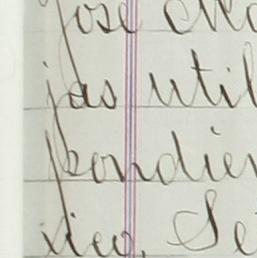 José Mo
jas util
pondien
rieo. Se